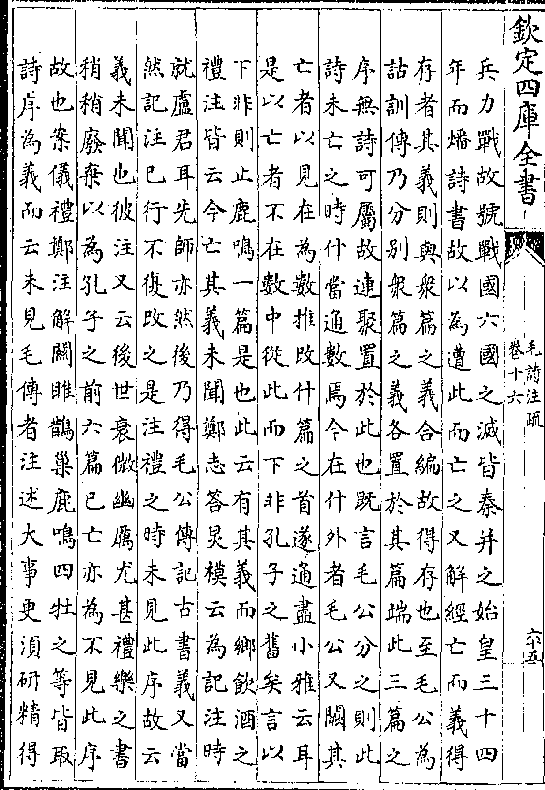 欽定四庫全書
毛詩注疏
卷十六
六十五
兵力戰故號戰國六國之滅皆秦并之始皇三十四
年而燔詩書故以為遭此而亡之又解經亡而義得
存者其義則與衆篇之義合編故得存也至毛公為
詁訓傳乃分别衆篇之義各置於其篇端此三篇之
序無詩可屬故連聚置於此也既言毛公分之則此
詩未亡之時什當通數焉今在什外者毛公又闕其
亡者以見在為數推改什篇之首遂通盡小雅云耳
是以亡者不在數中從此而下非孔子之舊矣言以
下非則止鹿鳴一篇是也此云有其義而鄉飲酒之
禮注皆云今亡其義未聞鄭志答炅模云為記注時
就盧君耳先師亦然後乃得毛公傳記古書義又當
然記注已行不復改之是注禮之時未見此序故云
義未聞也彼注又云後世衰微幽厲尤甚禮樂之書
稍稍廢棄以為孔子之前六篇已亡亦為不見此序
故也案儀禮鄭注解關雎鵲巢鹿鳴四牡之等皆取
詩序為義而云未見毛傳者注述大事更須研精得